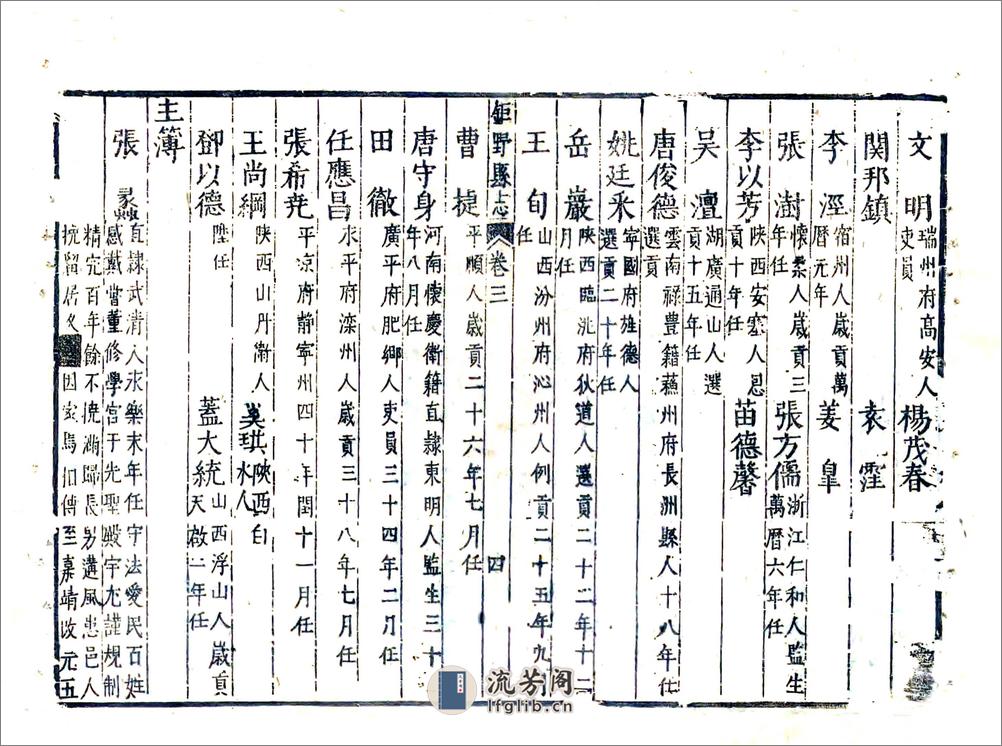 文明 瑞州府高安人吏員 楊茂春
関邦鎮 袁霆
李涇 宿州人歲貢萬曆元年 姜皐
張澍 懷柔人歲貢三年任 張方儒 浙江仁和人監生萬曆六年任
李以芳 陝西安塞人恩貢十年任 苗德馨
吴澶 湖廣通山人選貢十五年任
唐俊德 雲南祿豊籍蘇州府長洲縣人十八年任選貢
姚廷采 寧國府旌德人選貢二十年任
岳巖 陝西臨洮府狄道人選貢二十二年十二月任
王旬 山西汾州府沁州人例貢二十五年九月任
鉅野縣志 卷三 四
曹捷 平順人歲貢二十六年七月任
唐守身 河南懷慶衛籍直隸東明人監生三十年八月任
田徹 廣平府肥鄉人吏員三十四年二月任
任應昌 永平府灤州人歲貢三十八年七月任
張希尭 平凉府静寧州四十年閏十一月任
王尚綱 陝西山丹衛人 吴珙 陝西白水人
鄧以德 陞任 蓋大統 山西浮山人歲貢天啟二年任
主簿
張 直隸武清人永樂末年任守法愛民百姓
感戴嘗董修學宫于先聖殿宇尤謹規制
精完百年餘不撓滿歸長男遘風患邑人
抗留居久 因 馬 傳至嘉靖改元五
流芳阁
lfglib.cn